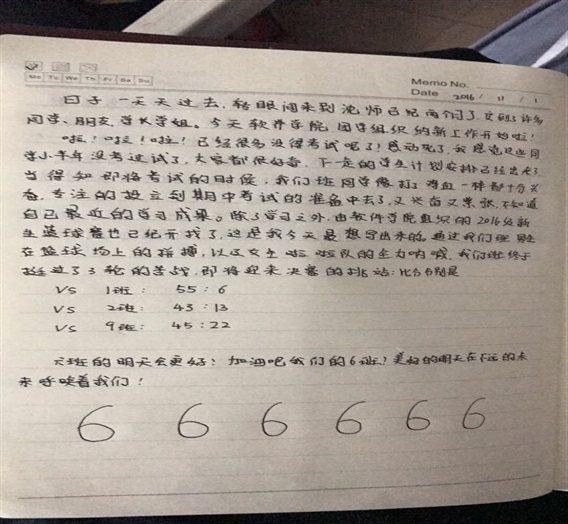 Mo Tu We Th Fr Sa Su
Memo No.
Date 2016 / 11 / 1
日子一天天过去,转眼间来到沈师已纪两个月了,交到了许多
同学、朋友、学长学姐。今天软件学院团学组织纳新工作开始啦!
啦!啦!啦!已经很多没得考试呢了!感动死了,我愿意这些同
学小半年没考过试了,大家都很好奇,下一走的学生计划安排已经出来了
当得知即将考试的时候,我们班同学像打了鸡血一样都十分兴
奋,专注的投立到期中考试的准备中去了,又兴奋又紧张,不知道
自己最近的学习成果。除了学习之外,由软件学院组织的2016级新
生篮球赛也已纪开战了,这是我今天最想写出来的。通过我们班男生
在篮球场上的拼搏,以及女生啦啦队的全力呐喊,我们班终于
挺过了3轮的苦战,即将迎来决赛的挑站:比分分别是
VS 1班: 55 : 6
VS 2班: 43 : 13
VS 9班: 45 : 22
六班的明天会更好!加油吧我们的6班!美好的明天在不远的未
来呼唤着我们!
6 6 6 6 6 6